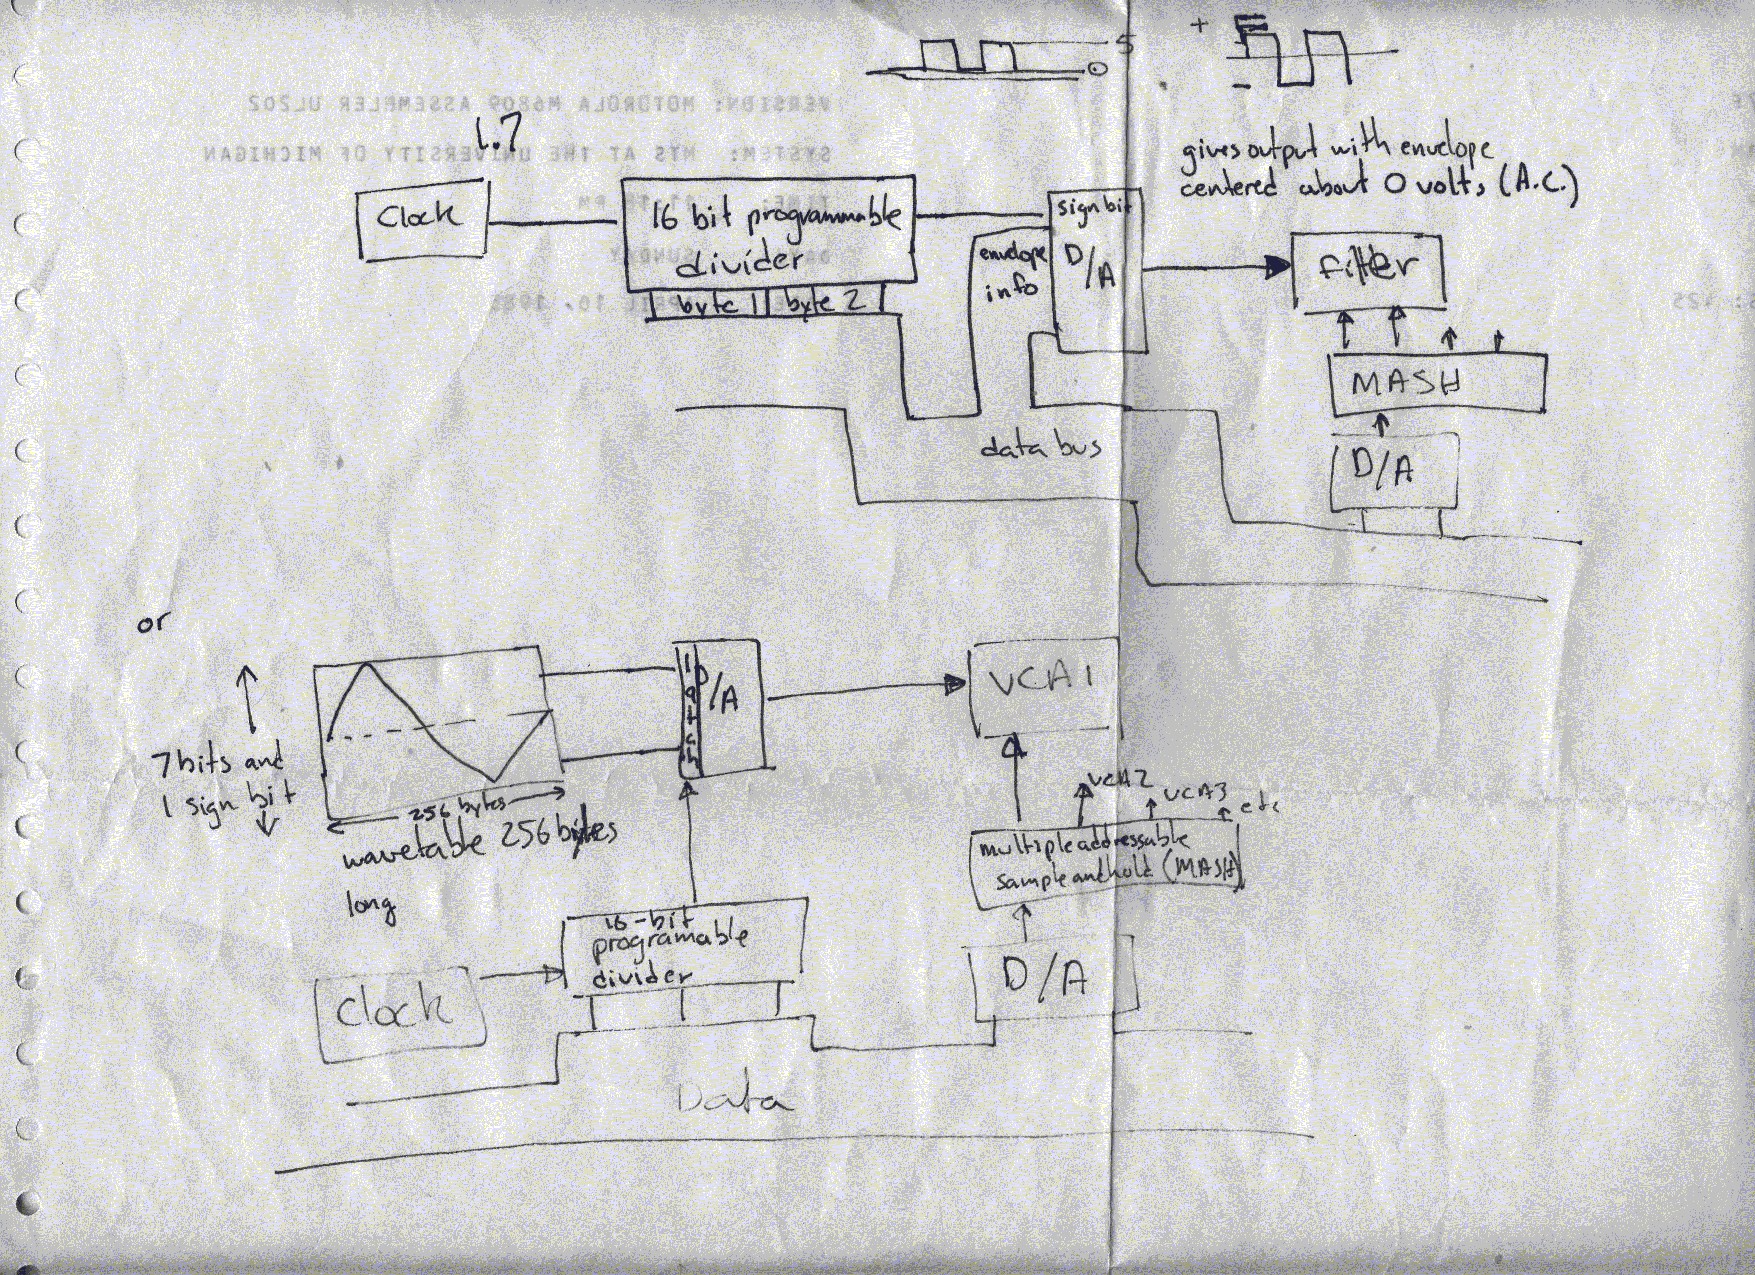 5
0
+
-
1.7
VERSION: MOTOROLA M6809 ASSEMBLER UL202
SYSTEM: MTS AT THE UNIVERSITY OF MICHIGAN
gives output with envelope
centered about 0 volts (A.C.)
Clock
16 bit programmable
divider
byte 1
byte 2
sign bit
D/A
envelope
info
filter
MASH
D/A
data bus
or
7 bits and
1 sign bit
256 bytes
wavetable 256 bytes
long
D/A
VCA1
VCA2
VCA3
etc
multiple addressable
sample and hold (MASH)
16-bit
programable
divider
Clock
D/A
Data